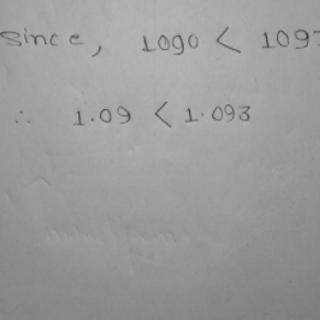 since, 1090 < 109
∴ 1.09 < 1.093